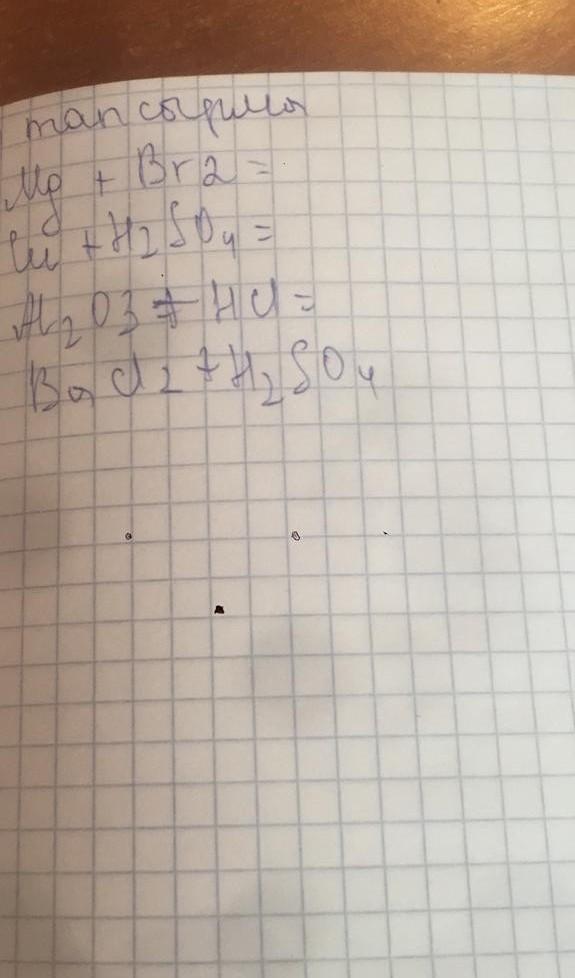 тапсырма
Mg + Br2 =
Cu + H2SO4 =
Al2O3 + HCl =
BaCl2 + H2SO4